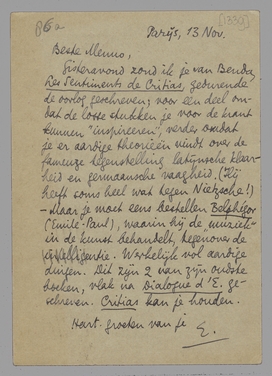 86a
[1339]
Parijs, 13 Nov.
Beste Menno,
Gisteravond zond ik je van Benda,
Les Sentiments de Critias, gedurende
de oorlog geschreven; voor een deel om-
dat de losse stukken je voor de krant
kunnen "inspireeren", verder omdat
je er aardige theorieën vindt over de
fameuze tegenstelling latijnsche klaar-
heid en germaansche vaagheid. (Hij
heeft soms heel wat tegen Nietzsche!)
– Maar je moet eens bestellen Belphégor
(Emile-Paul), waarin hij de "muziek"
in de kunst behandelt, tegenover de
intelligentie. Werkelijk vol aardige
dingen. Dit zijn 2 van zijn oudste
boeken, vlak na Dialogue d'E. ge-
schreven. Critias kan je houden.
Hart. groeten van je
E.